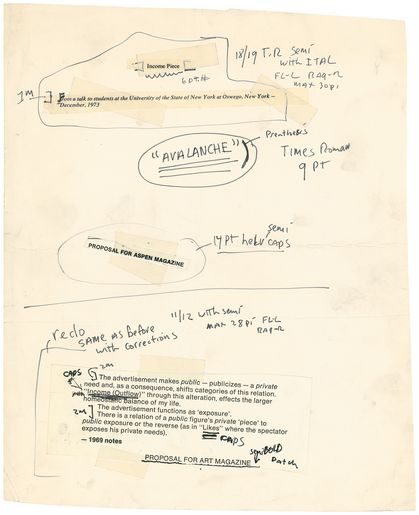 18/19 T.R semi
with ITAL
FL-L RAG-R
MAX 30pi
Income Piece
6 pt.#
1M
From a talk to students at the University of the State of New York at Oswego, New York —
December, 1973
Parenthesis
"AVALANCHE")
Times Roman
9 PT
semi
14pt helv CAPS
PROPOSAL FOR ASPEN MAGAZINE
11/12 with semi
MAX 28pi FL-L
RAG-R
redo
SAME AS before
with corrections
CAPS
2M
The advertisement makes public — publicizes — a private
need and, as a consequence, shifts categories of this relation.
"Income (Outflow)" through this alteration, effects the larger
homeostatic balance of my life.
2M
The advertisement functions as 'exposure'.
There is a relation of a public figure's private 'piece' to
public exposure or the reverse (as in "Likes" where the spectator
exposes his private needs).
CAPS
— 1969 notes
semiBOLD
PROPOSAL FOR ART MAGAZINE
Patch